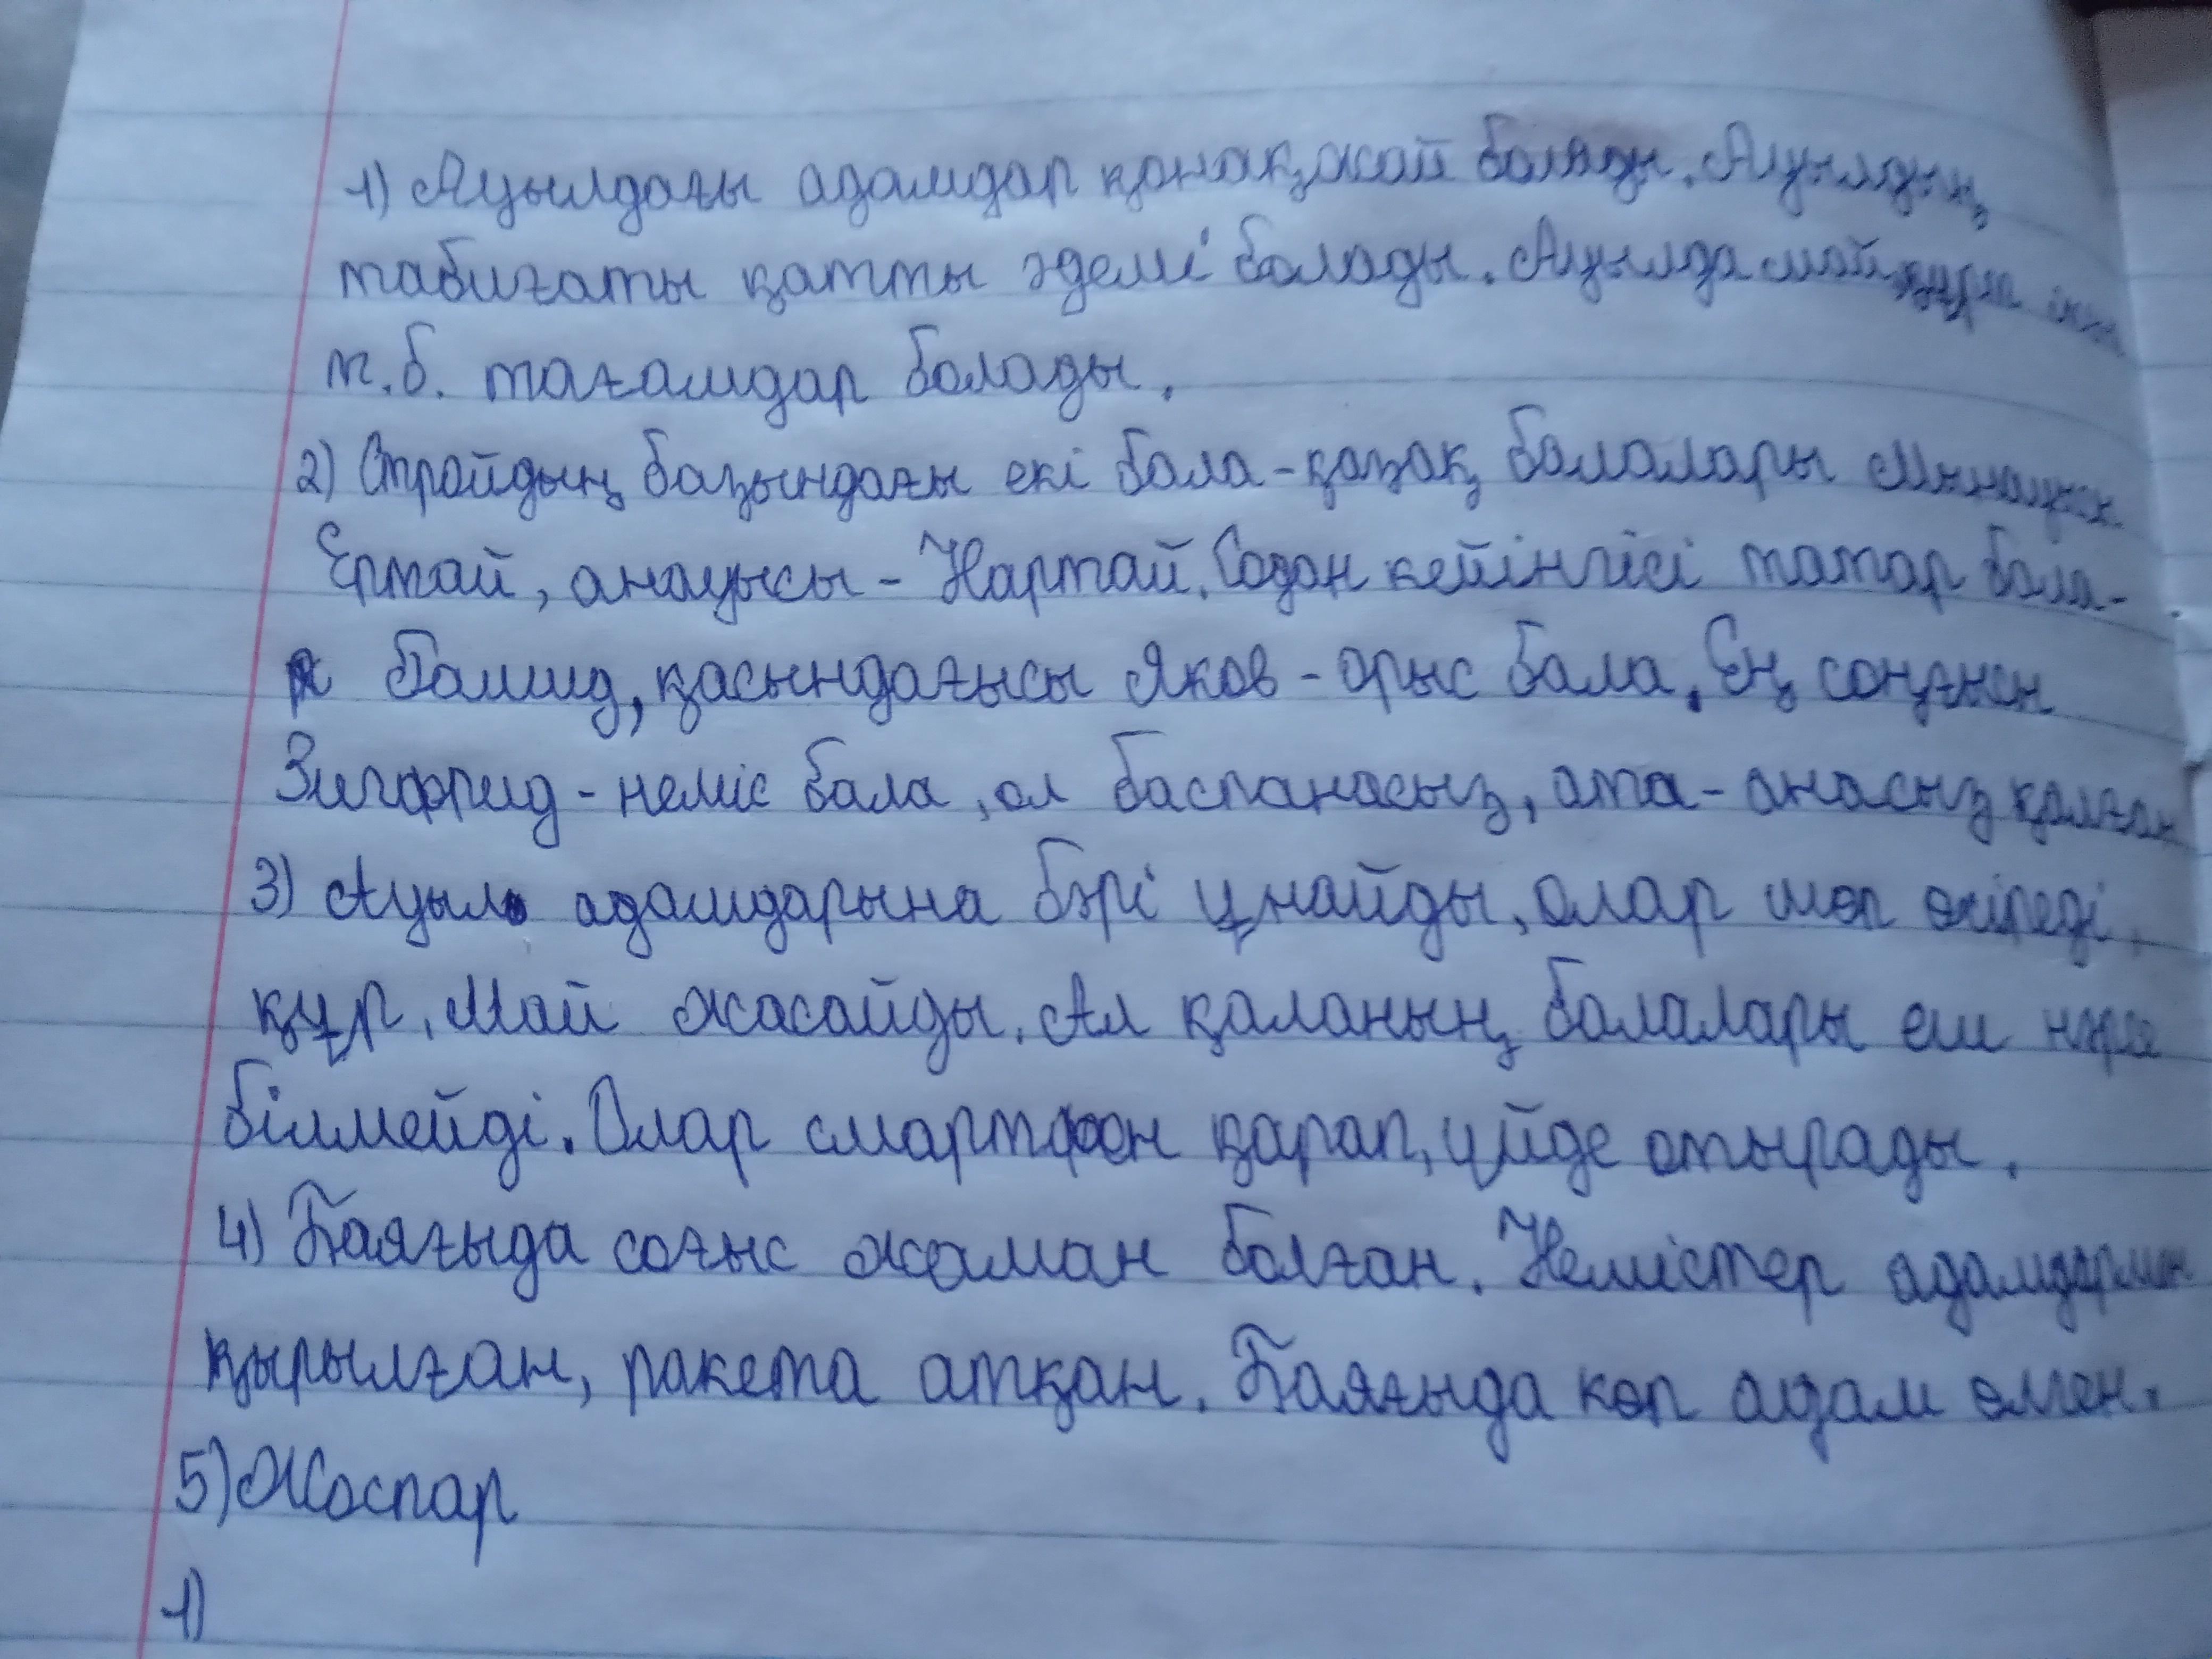 1) Ауылдағы адамдар қонақжай болады. Ауылдың
табиғаты қатты әдемі болады. Ауылда май
т.б. тағамдар болады.
2) Стройдың басындағы екі бала-қазақ балалары
Ертай, анауысы - Нартай. Содан кейінгісі татар бала-
Гамид, қасындағысы Яков - орыс бала. Ең соңғысы
Зигфрид - неміс бала, ол баспанасыз, ата-анасыз қалған
3) Ауыл адамдарына бәрі ұнайды, олар шөп өсіреді,
құр. Май жасайды. Ал қаланың балалары еш нәрсе
білмейді. Олар смартфон қарап, үйде отырады.
4) Баяғыда соғыс жаман болған. Немістер
қырылған, ракета атқан. Баяғында көп адам өлген.
5) Жоспар
1)